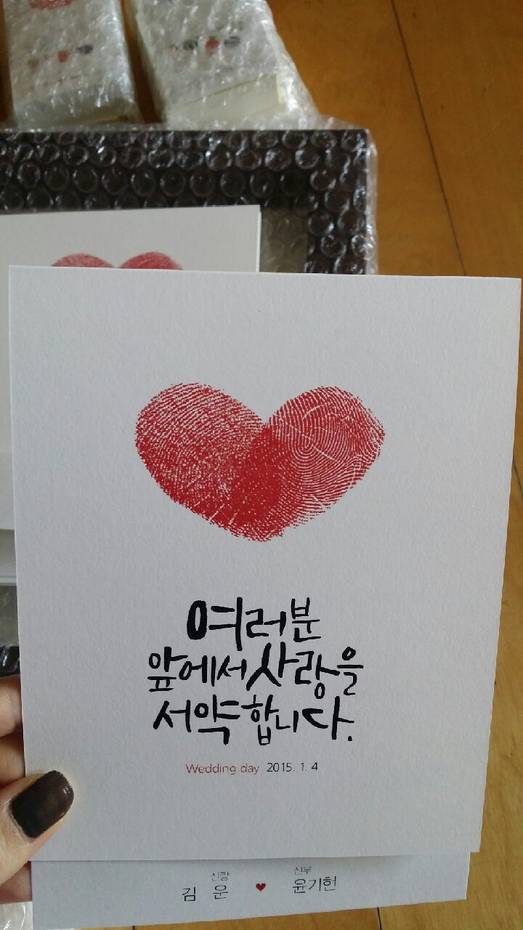 여러분
앞에서 사랑을
서약합니다.
Wedding day 2015. 1. 4
신랑 신부
김 운 ♥ 윤기헌